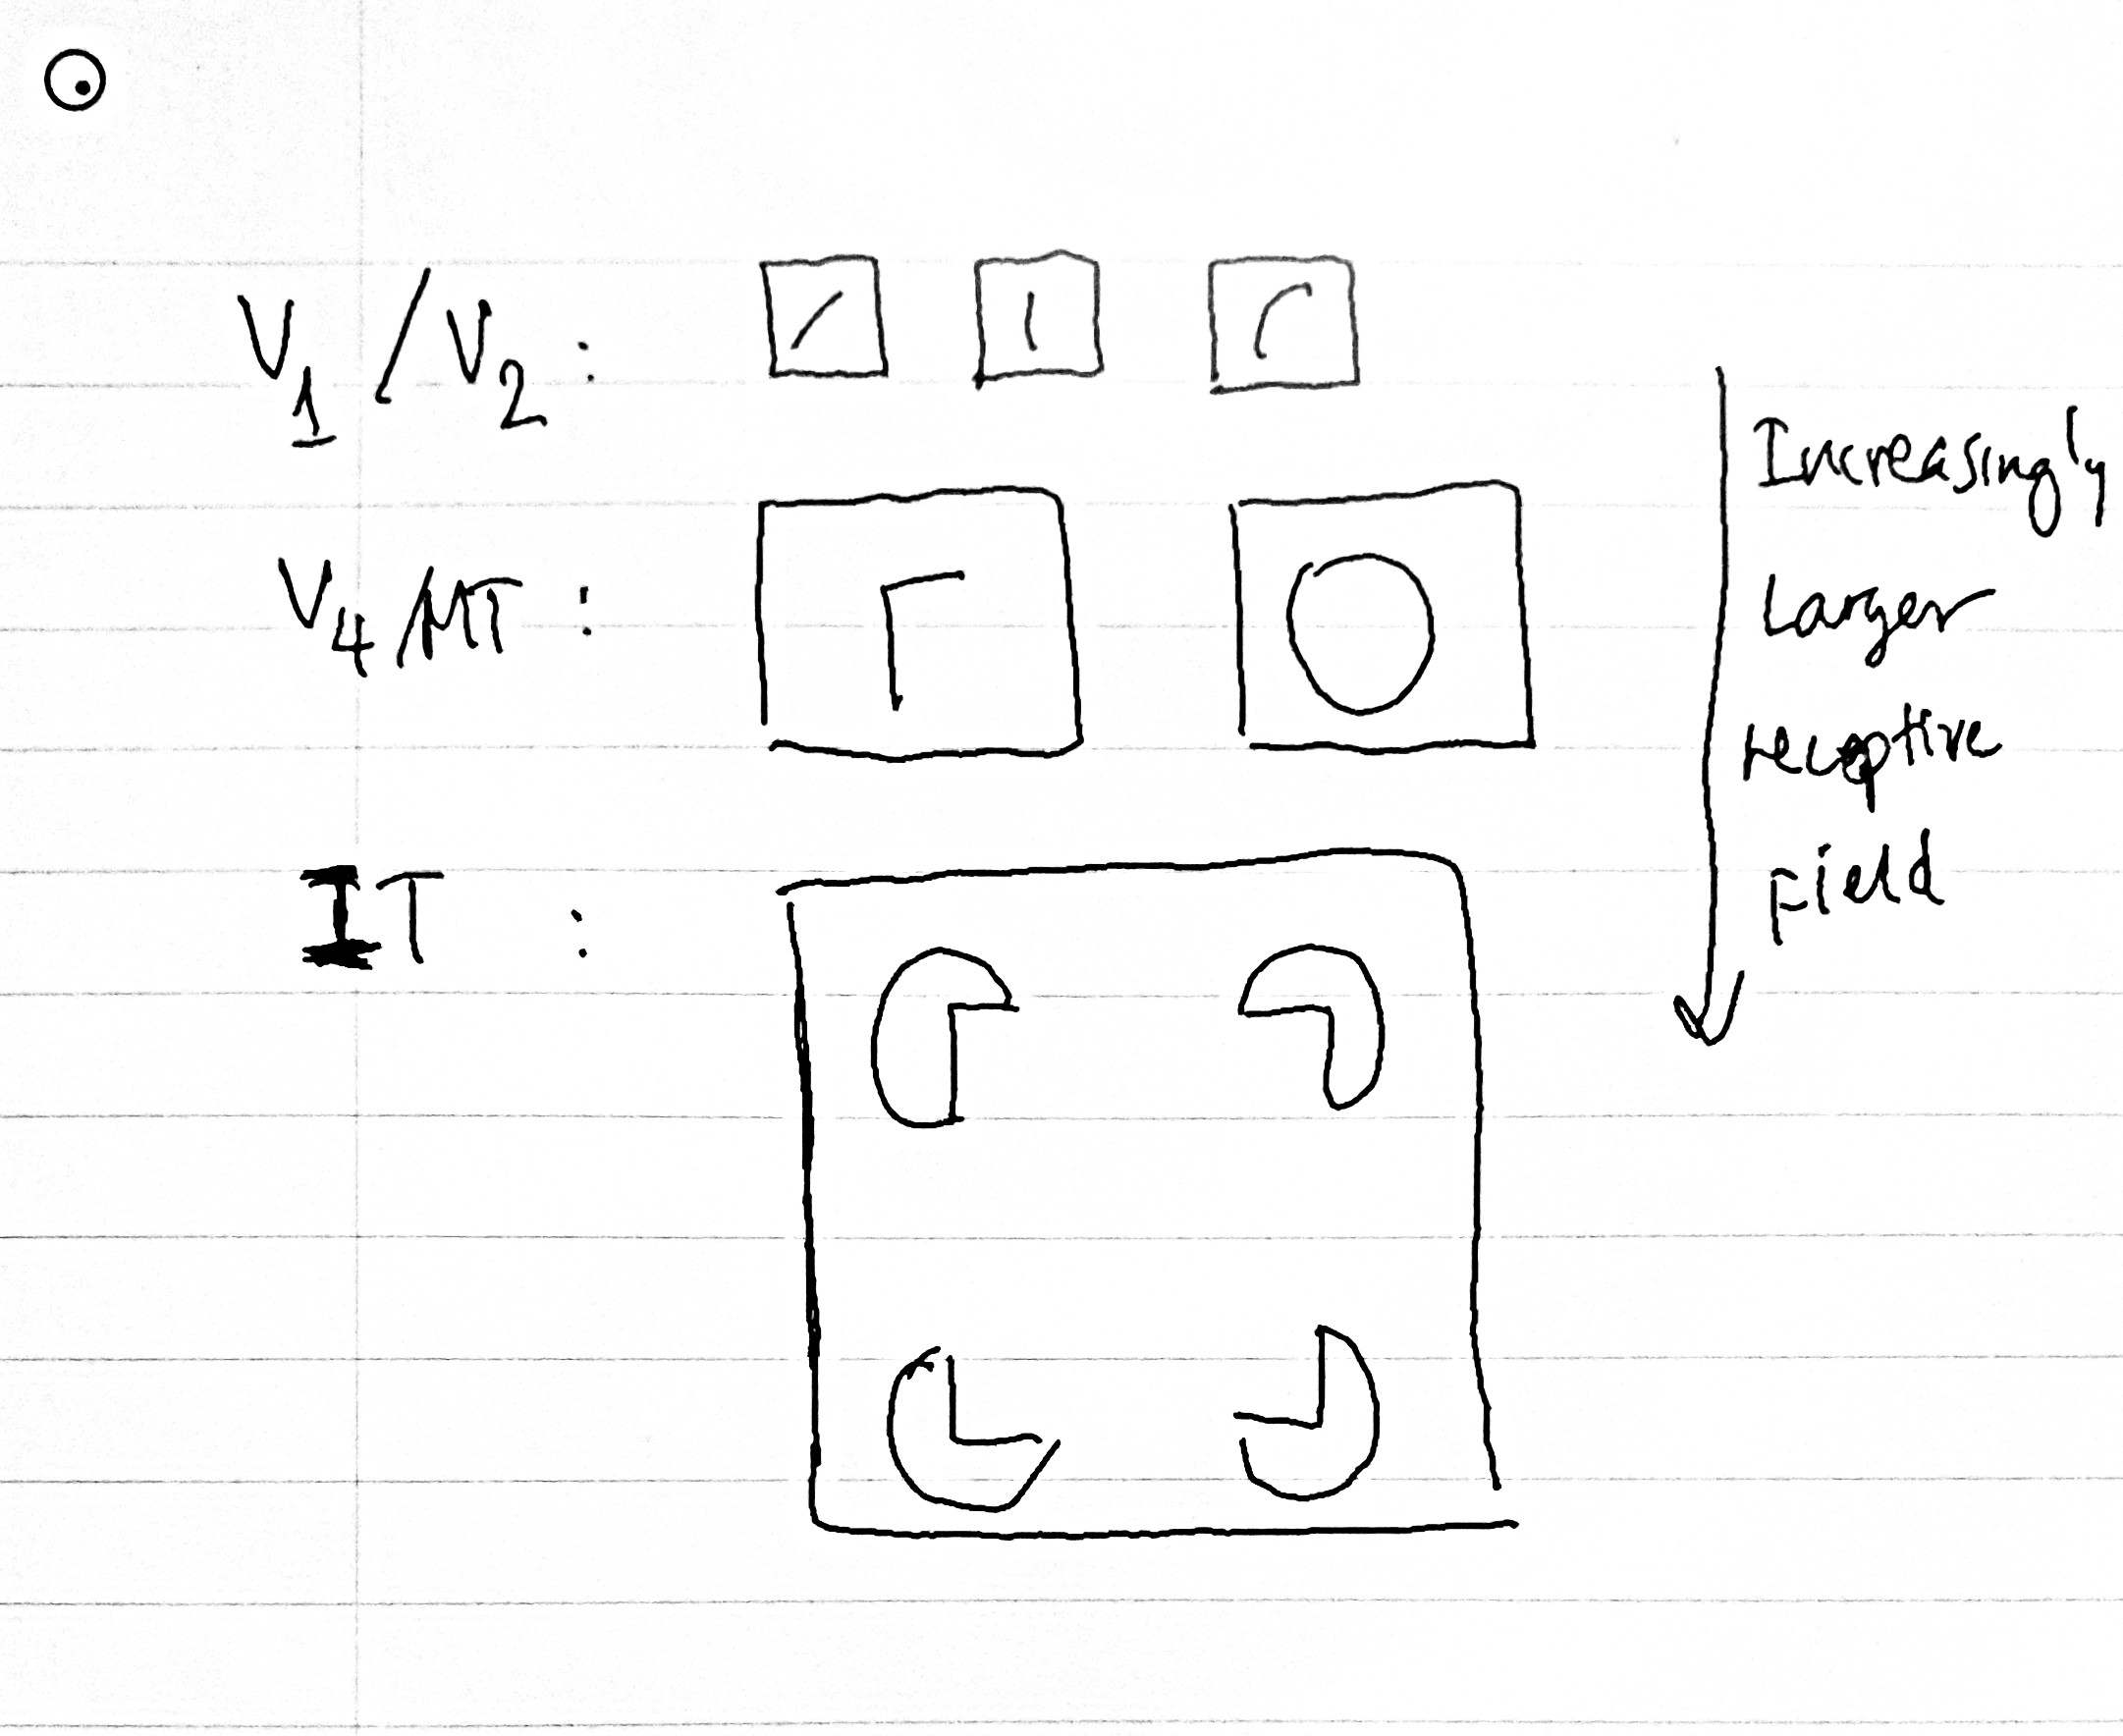 V1/V2:
V4/MT:
IT :
Increasingly
Larger
receptive
Field